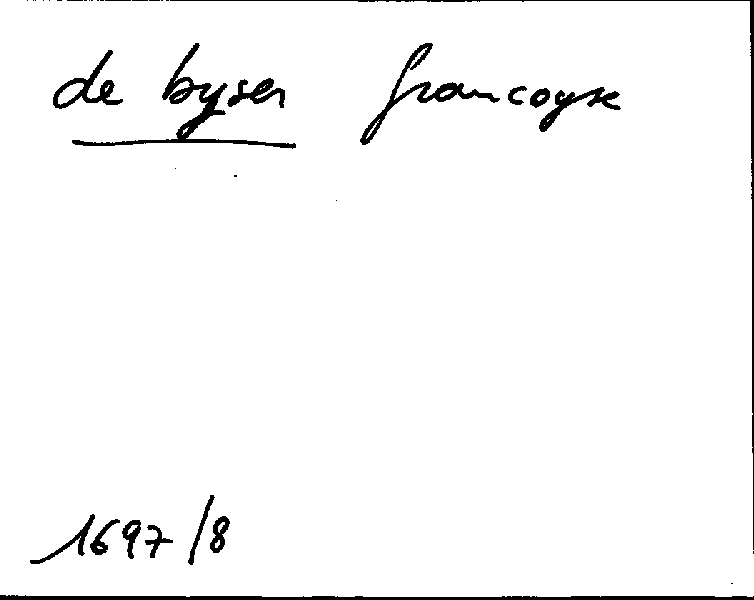 de byser francoyse
1697/8